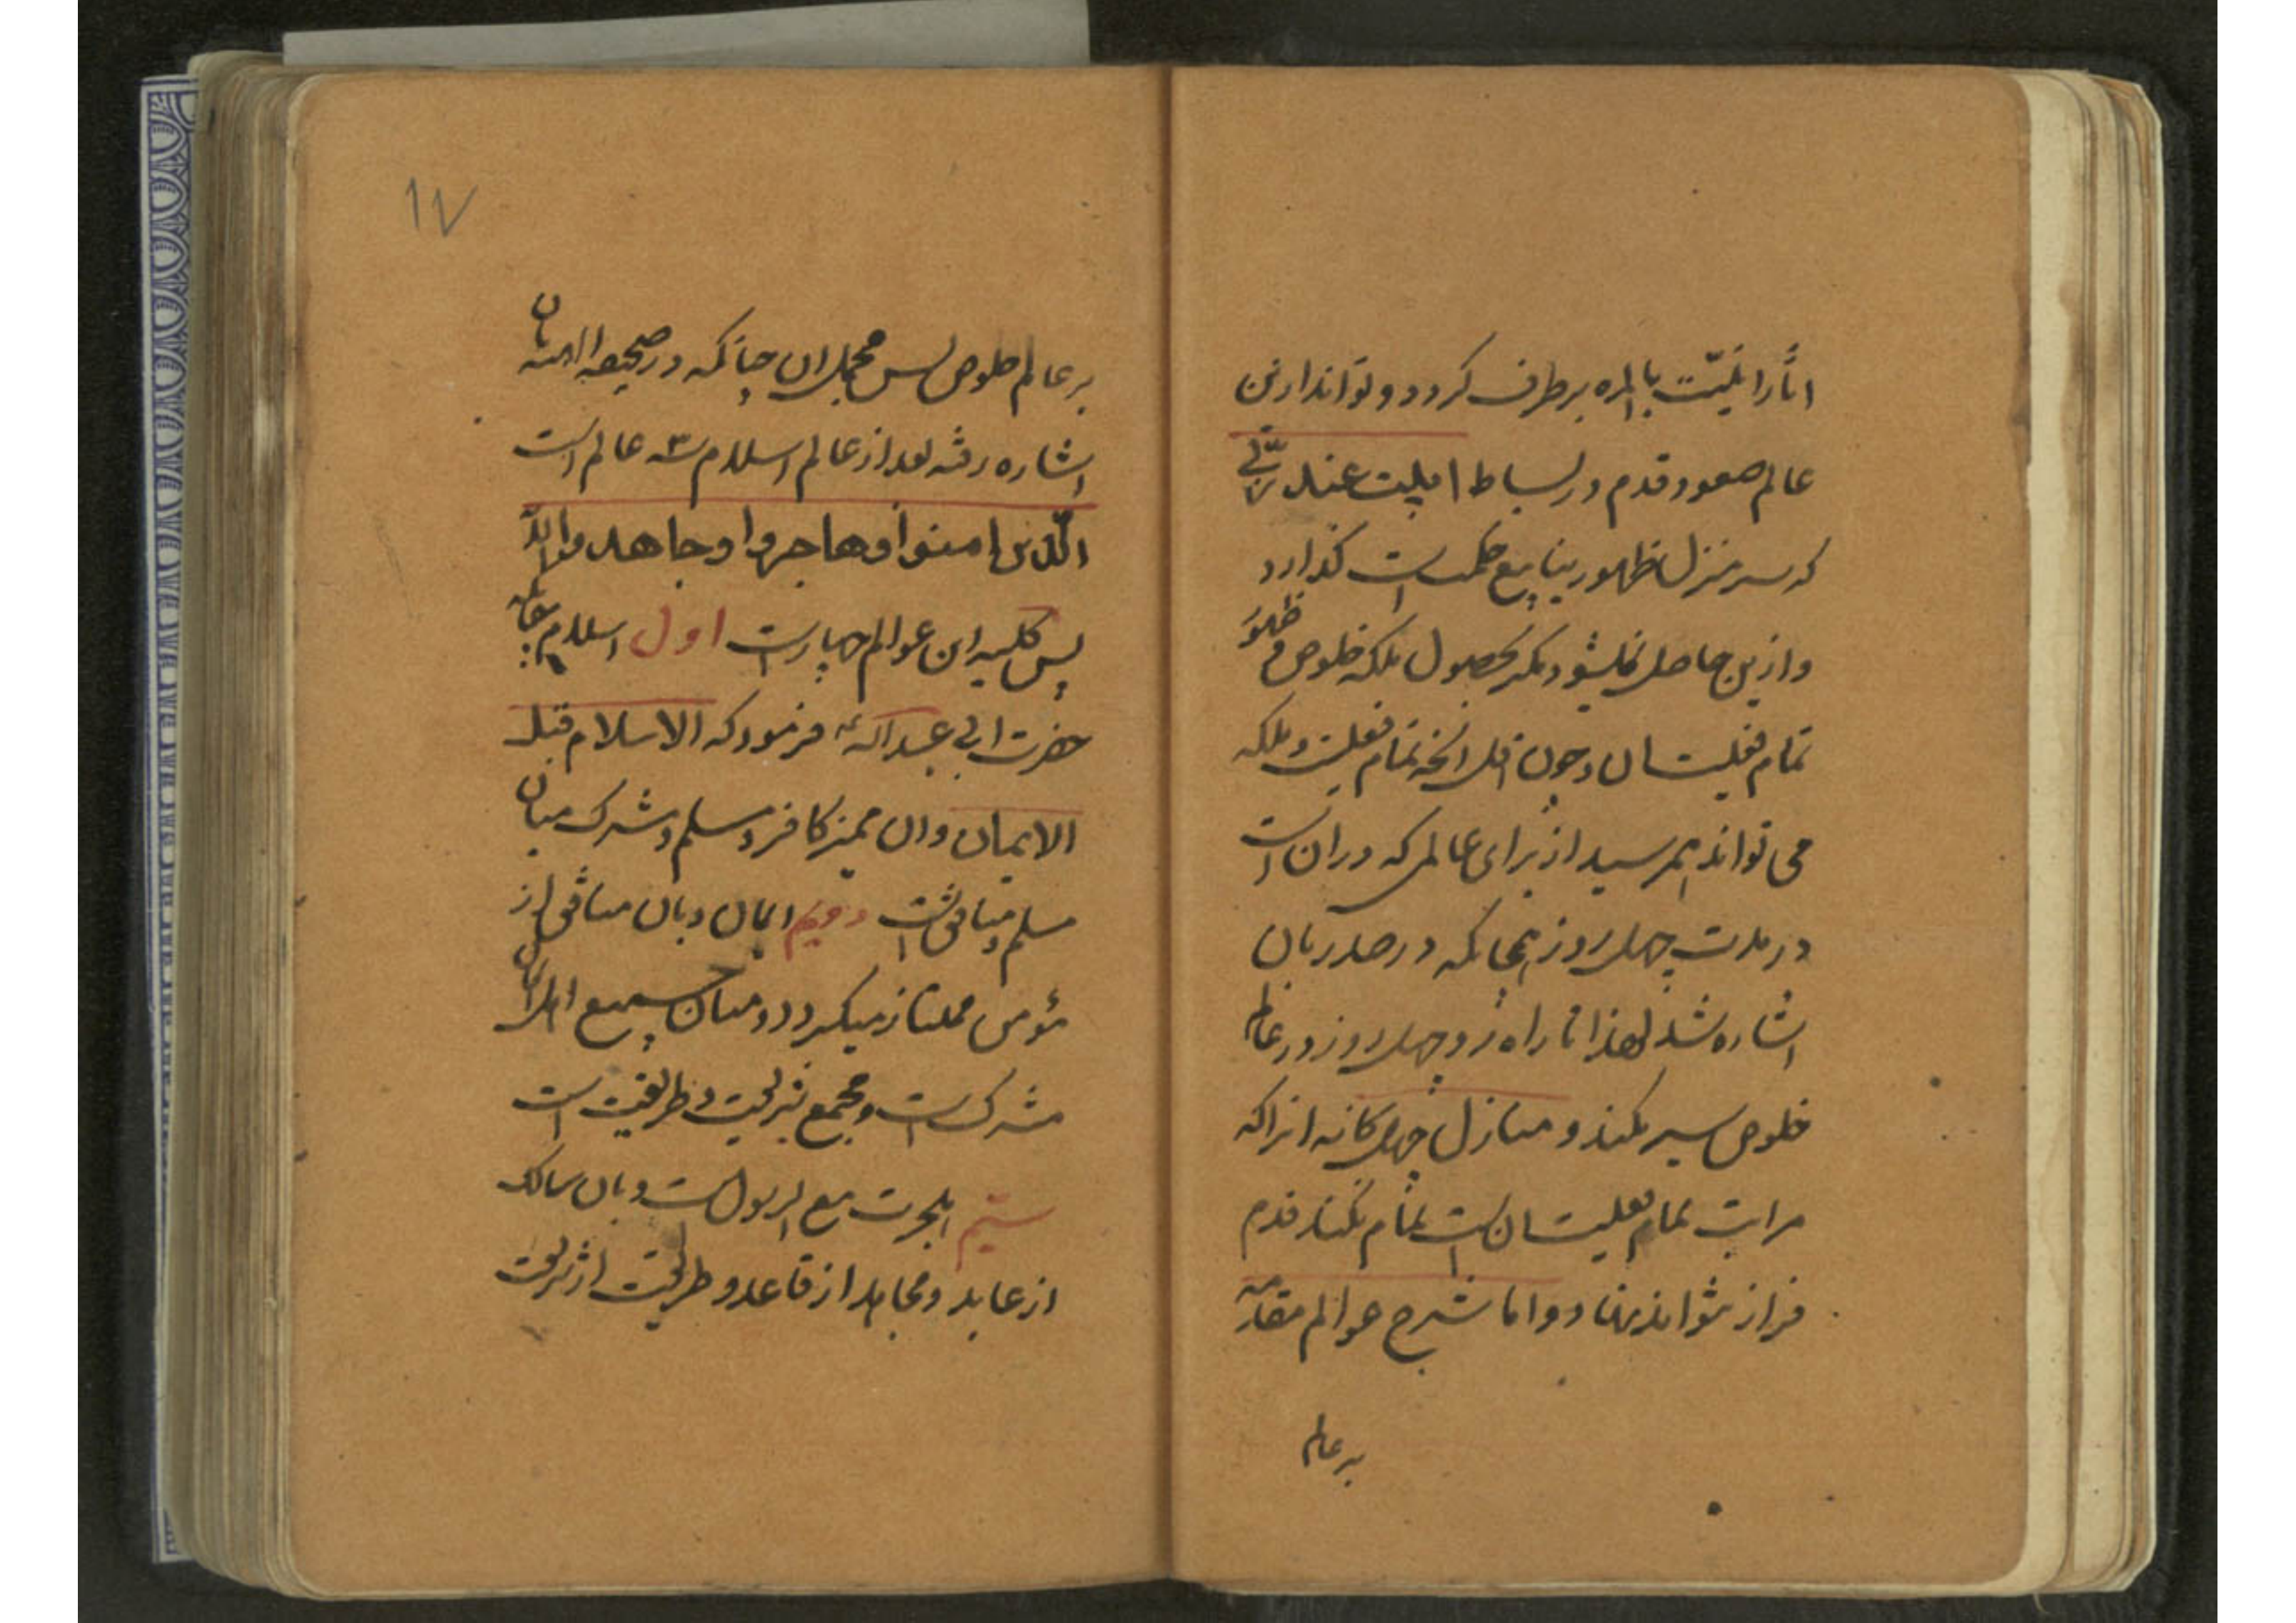 اثار انیّت بالمره برطرف کردد و تواند ازین
عالم صعود و قدم در بساط ابیت عند ربّی
که سرمنزل ظهور ینابیع حکمت است گذارد
و ازین حاصل نمیشود مکر بحصول ملکه خلوص و ظهور
تمام فعلیت ان و چون اقل انچه تمام فعلیت و ملکه
می تواند بهمرسید از برای عالمی که در ان است
در مدت چهل روز همچنانکه در صدر بان
اشاره شد لهذا تا راه رو چهل روز در عالم
خلوص سیر نکند و منازل چهل کانه انرا که
مراتب تمام فعلیت ان است تمام نکند قدم
فراتر نتواند نهاد و اما شرح عوالم مقدمه
بر عالم
۱۷
بر عالم خلوص پس مجمل ان چنانکه در صحیفه الهیه بان
اشاره رفته بعد از عالم اسلام ۳ عالم است
الّذین امنوا و هاجروا و جاهدوا
پس کلیه این عوالم چهار است اول اسلام چنانکه
حضرت ابی عبد الله ع فرمود که الاسلام قبل
الایمان و ان ممیز کافر و مسلم و مشترک میان
مسلم و منافق است دویم ایمان و بان منافق از
مؤمن ممتاز میکردد و میان جمیع اهل ایمان
مشترک است و مجمع شریعت و طریقت است
سیّم الهجرت مع الرسول است و بان سالک
از عابد و مجاهد از قاعد و طریقت از شریعت